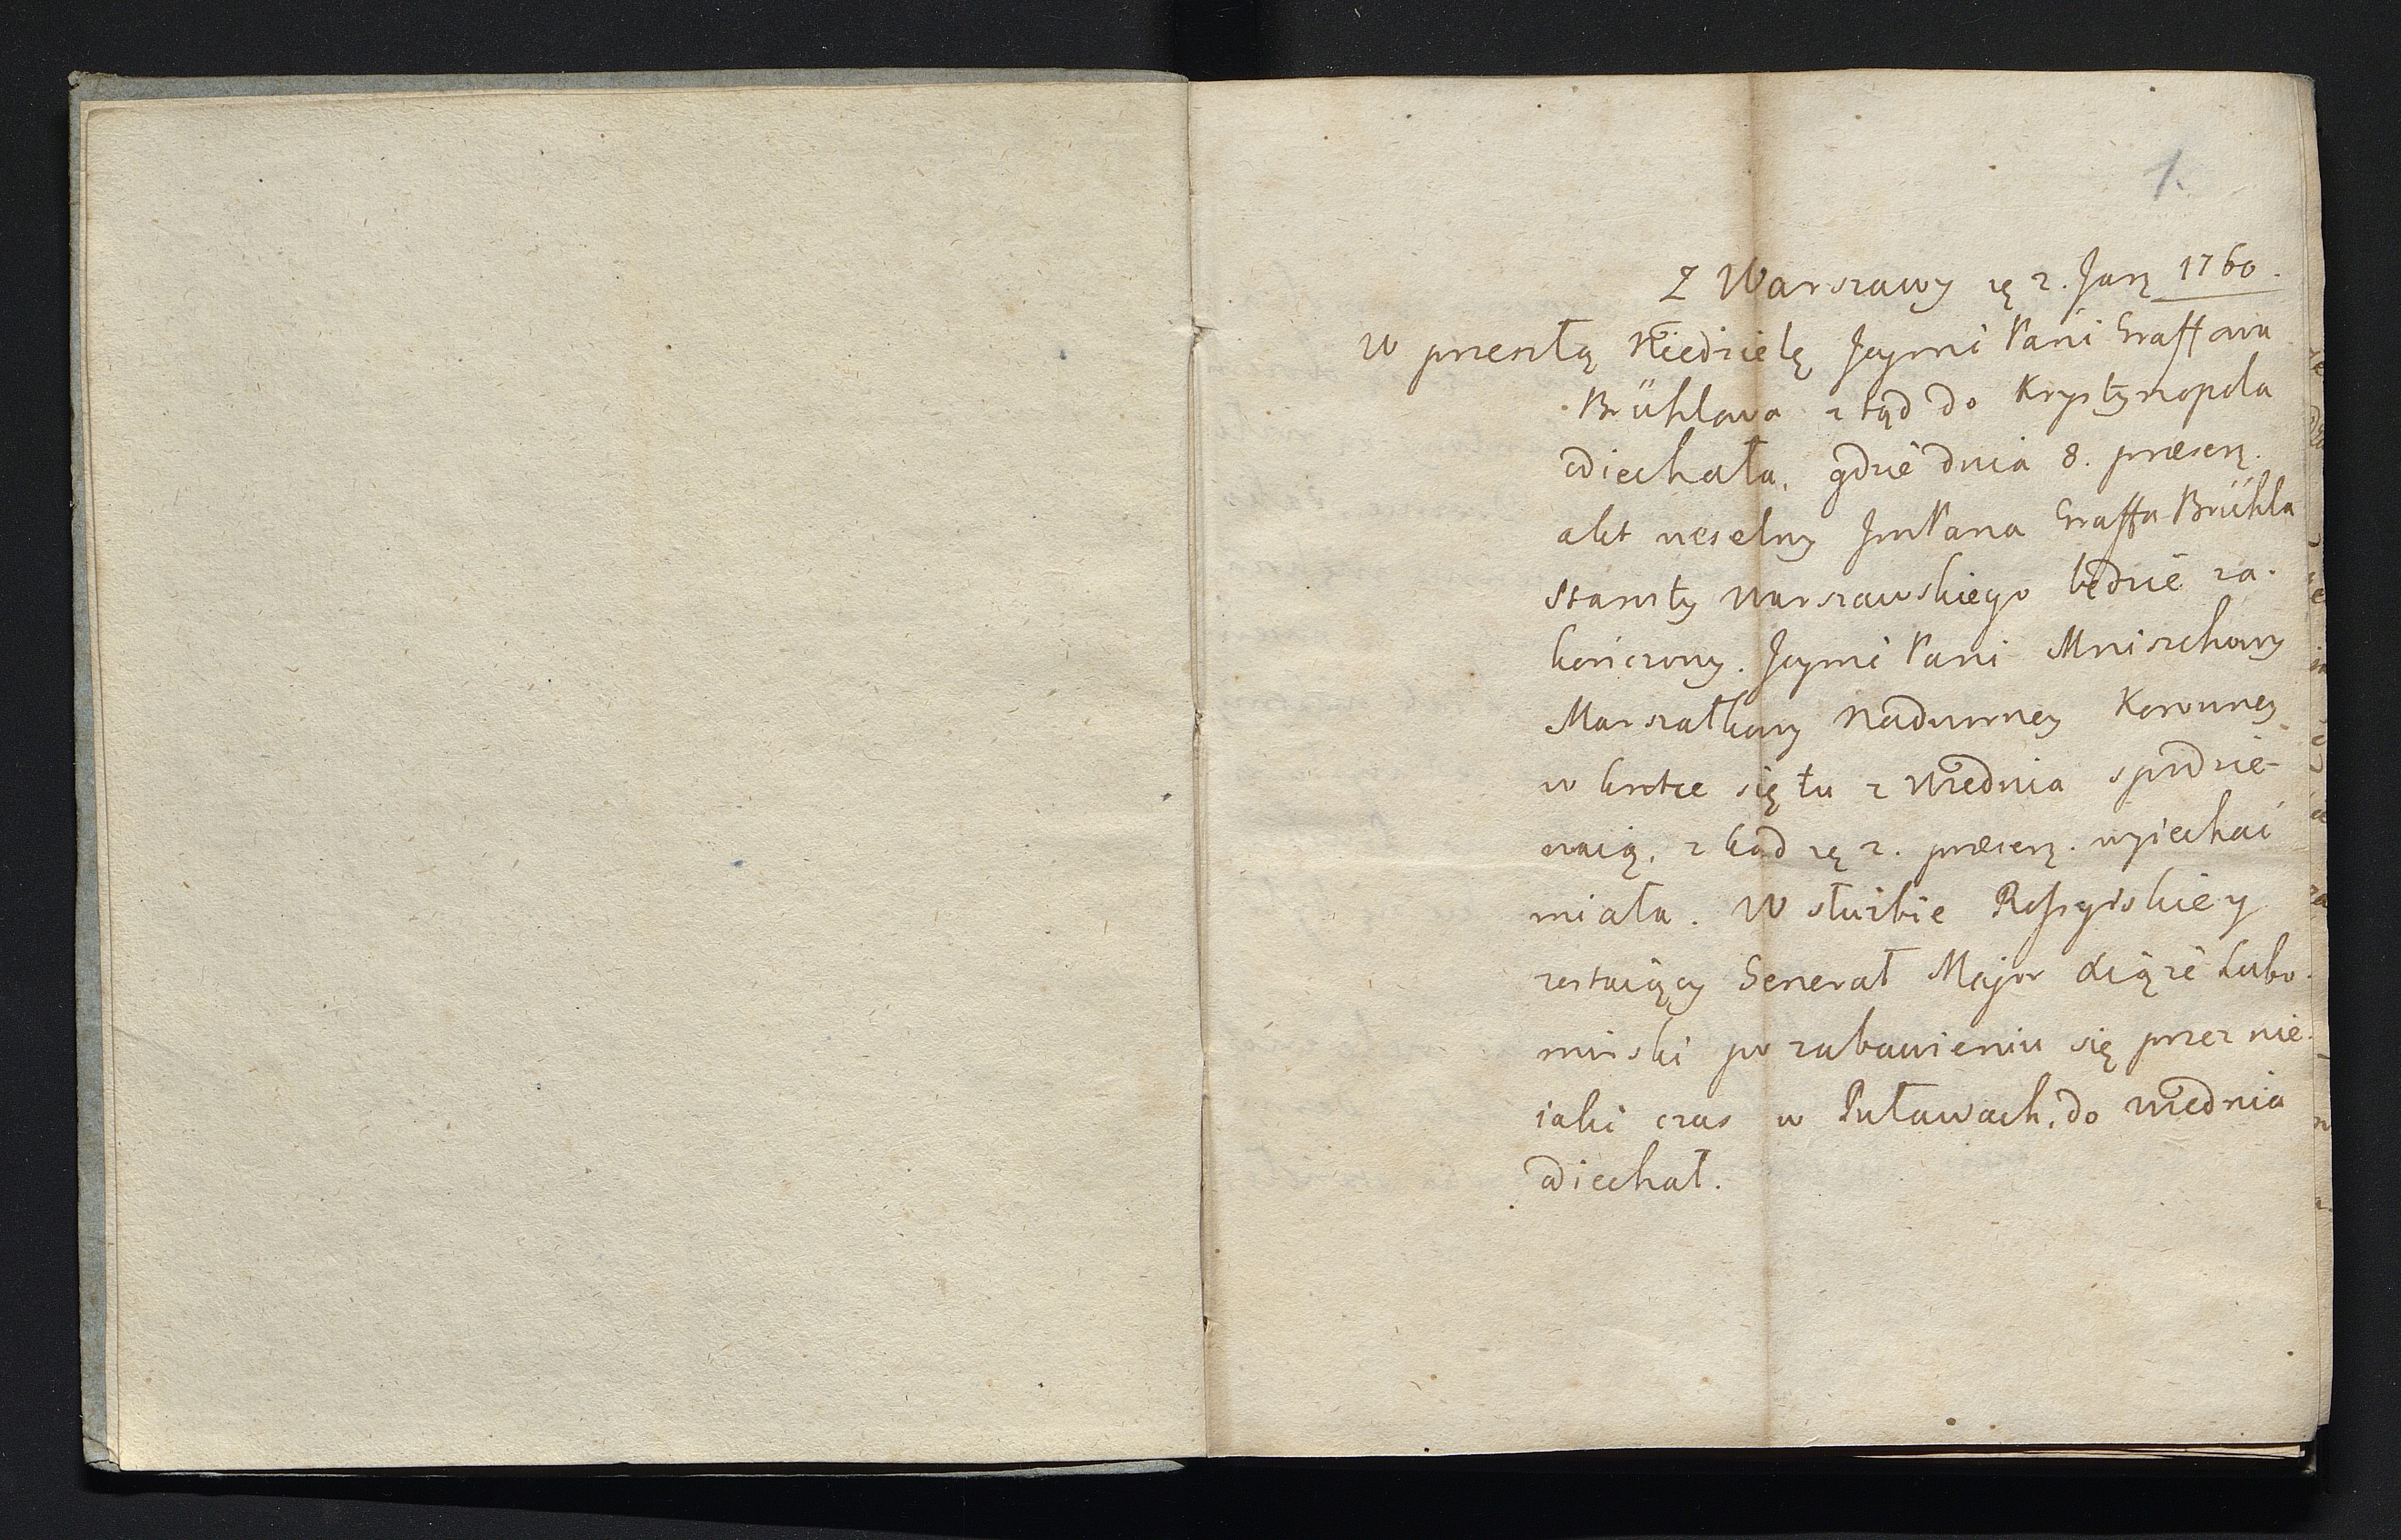 1.
Z Warszawy 2. Jan 1760.
W przeszłą Niedzielę Jeymć Pani Graffowa
Brühlowa z tąd do Krystynopola
odiechała, gdzie dnia 8. præsen.
akt weselny JmPana Graffa Brühla
Starosty Warszawskiego będzie za-
kończony. Jeymć Pani Mniszchowy
Marszałkowy Nadworney Koronney
w krotce się tu z Wiednia spodzie-
waią, z kąd 2. præsen. wyiechać
miała. W służbie Rossyiskiey
zostaiący Generał Major Xiąże Lubo-
mirski po zabawieniu się przez nie-
iaki czas w Puławach, do Wiednia
odiechał.